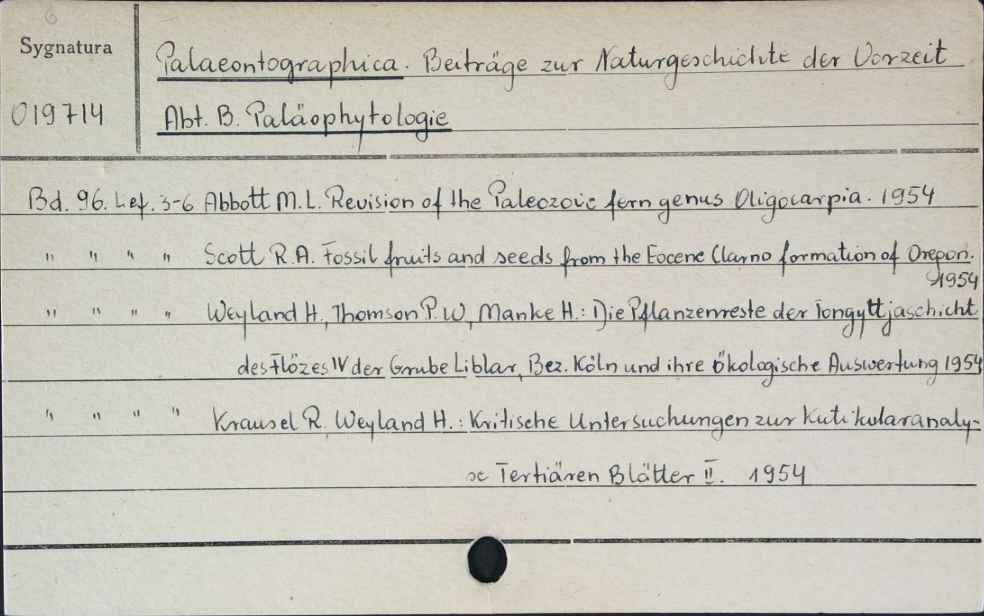 6
Sygnatura
019714
Palaeontographica. Beiträge zur Naturgeschichte der Vorzeit
Abt. B. Paläophytologie
Bd. 96. Lef. 3-6 Abbott M.L. Revision of the Paleozoic fern genus Oligocarpia. 1954
" " " " Scott R.A. Fossil fruits and seeds from the Eocene Clarno formation of Oregon.
1954
" " " " Weyland H., Thomson P.W., Manke H.: Die Pflanzenreste der Tongyttjaschicht
des Flözes IV der Grube Liblar, Bez. Köln und ihre ökologische Auswertung 1954
" " " " Krausel R. Weyland H.: Kritische Untersuchungen zur Kutikularanaly-
se Tertiären Blätter II. 1954